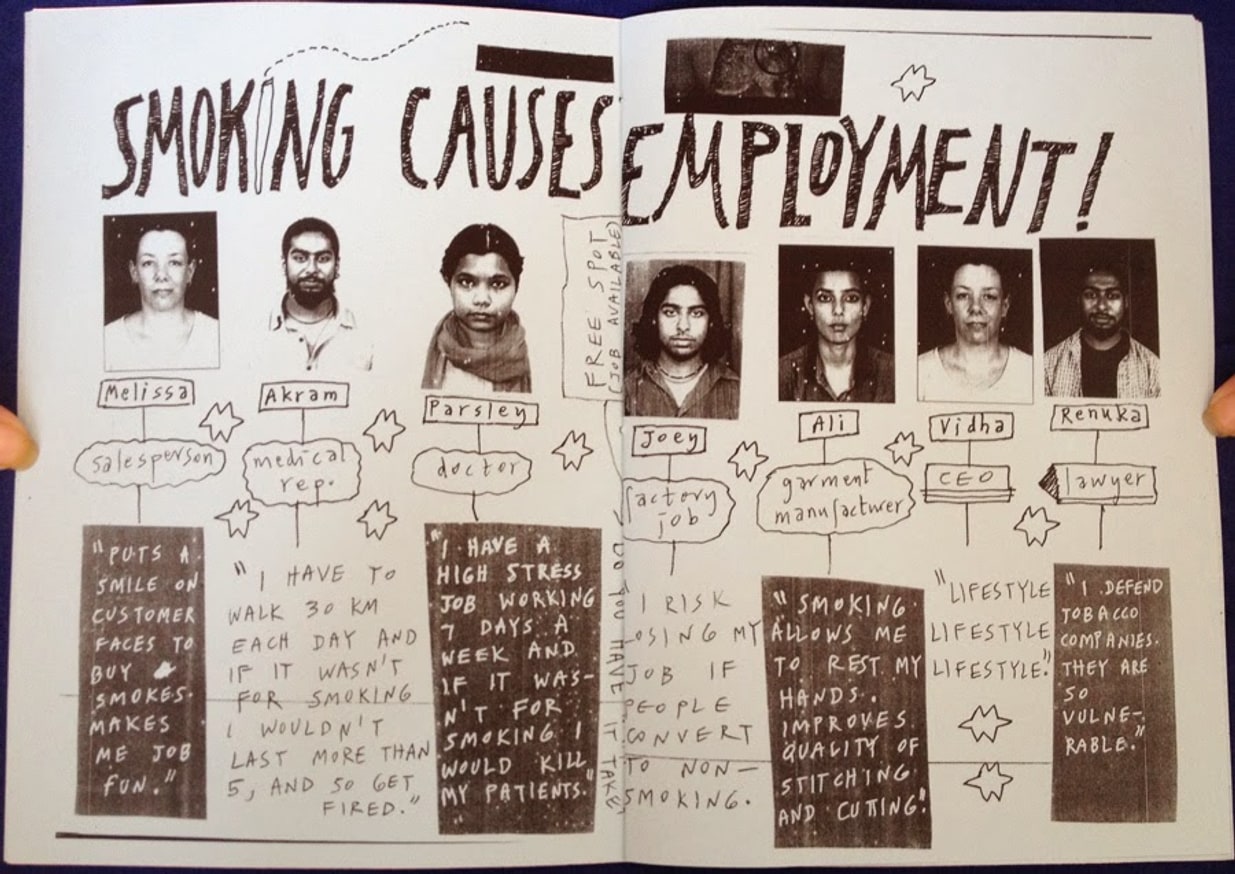 SMOKING CAUSES EMPLOYMENT!
Melissa
salesperson
"PUTS A
SMILE ON
CUSTOMER
FACES TO
BUY
SMOKES.
MAKES
ME JOB
FUN."
Akram
medical
rep.
"I HAVE TO
WALK 30 KM
EACH DAY AND
IF IT WASN'T
FOR SMOKING
I WOULDN'T
LAST MORE THAN
5, AND SO GET
FIRED."
Parsley
doctor
"I HAVE A
HIGH STRESS
JOB WORKING
7 DAYS A
WEEK AND
IF IT WAS-
N'T FOR
SMOKING I
WOULD KILL
MY PATIENTS."
FREE SPOT
(JOB AVAILABLE)
DO YOU HAVE IT TAKE
Joey
factory
job
I RISK
LOSING MY
JOB IF
PEOPLE
CONVERT
TO NON-
SMOKING.
Ali
garment
manufacturer
"SMOKING
ALLOWS ME
TO REST MY
HANDS.
IMPROVES
QUALITY OF
STITCHING
AND CUTTING!
Vidha
CEO
"LIFESTYLE
LIFESTYLE
LIFESTYLE."
Renuka
lawyer
"I DEFEND
TOBACCO
COMPANIES.
THEY ARE
SO
VULNE-
RABLE."